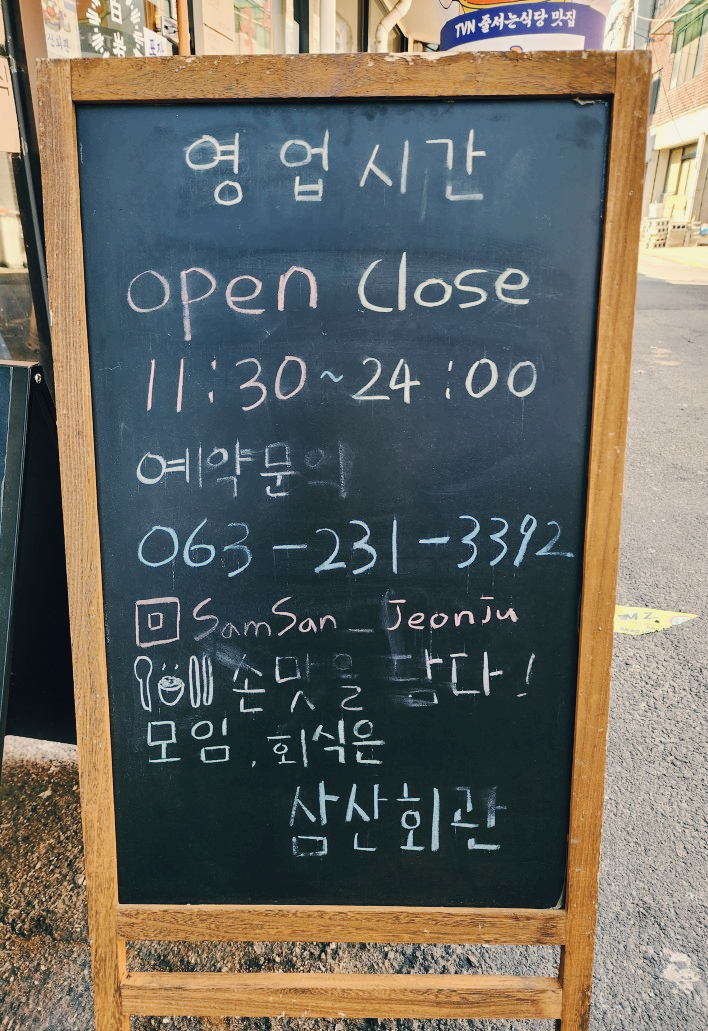 TVN 줄서는식당 맛집
영업시간
open Close
11:30~24:00
예약문의
063-231-3392
SamSan_Jeonju
손맛을 담다!
모임, 회식은
삼산회관
MZ